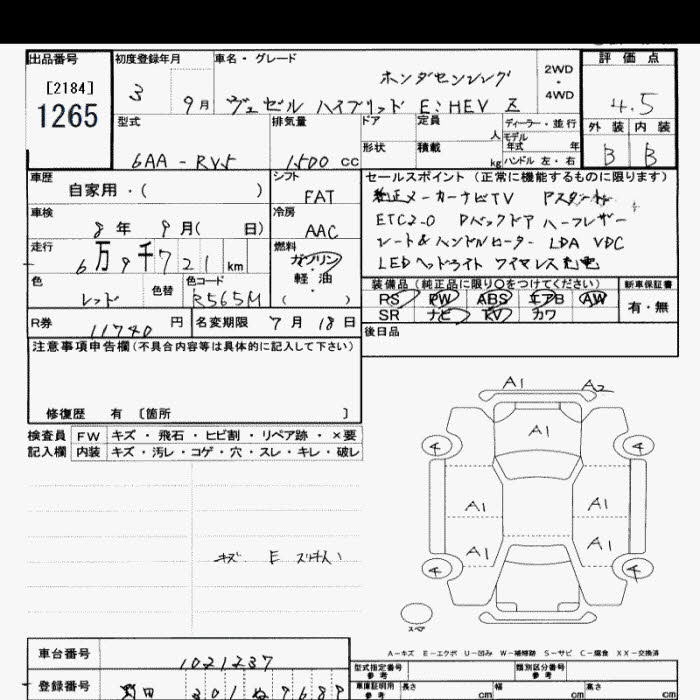 出品番号 初度登録年月 車名・グレード 評価点
[2184]
1265
3 9月
ホンダセンシング
ヴェゼル ハイブリッド E:HEV Z
2WD
・
4WD
4.5
外装 内装
B B
型式 排気量 ドア 定員 人 ディーラー・並行
モデル年式 年
6AA-RV5 1,500cc 形状 積載 kg ハンドル 左・右
車歴 自家用・( )
シフト FAT
セールスポイント(正常に機能するものに限ります)
純正メーカーナビTV
ETC2.0 Pバックドア ハーフレザー
シート&ハンドルヒーター LDA VDC
LEDヘッドライト ワイヤレス充電
車検 8年9月( 日)
冷房 AAC
走行 6万9千721km
燃料 ガソリン・軽油
( )
色 レッド 色替 色コード R565M
装備品(純正品に限り○をつけてください) 新車保証書
RS PW ABS エアB AW
SR ナビ TV カワ
有・無
R券 11740円 名変期限 7月18日
後日品
注意事項申告欄(不具合内容等は具体的に記入して下さい)
修復歴 有 〔箇所 〕
検査員 FW キズ・飛石・ヒビ割・リペア跡・×要
記入欄 内装 キズ・汚レ・コゲ・穴・スレ・キレ・破レ
A1 A2
A1
4 4
A1 A1
A1 A1
4 4
スペア
キズ E
A-キズ E-エクボ U-凹み W-補修跡 S-サビ C-腐食 XX-交換済
車台番号 1021237
型式指定番号 参考 類別区分番号 参考
登録番号 301 ぬ 9689
車庫証明用 参考 長さ cm 幅 cm 高さ cm